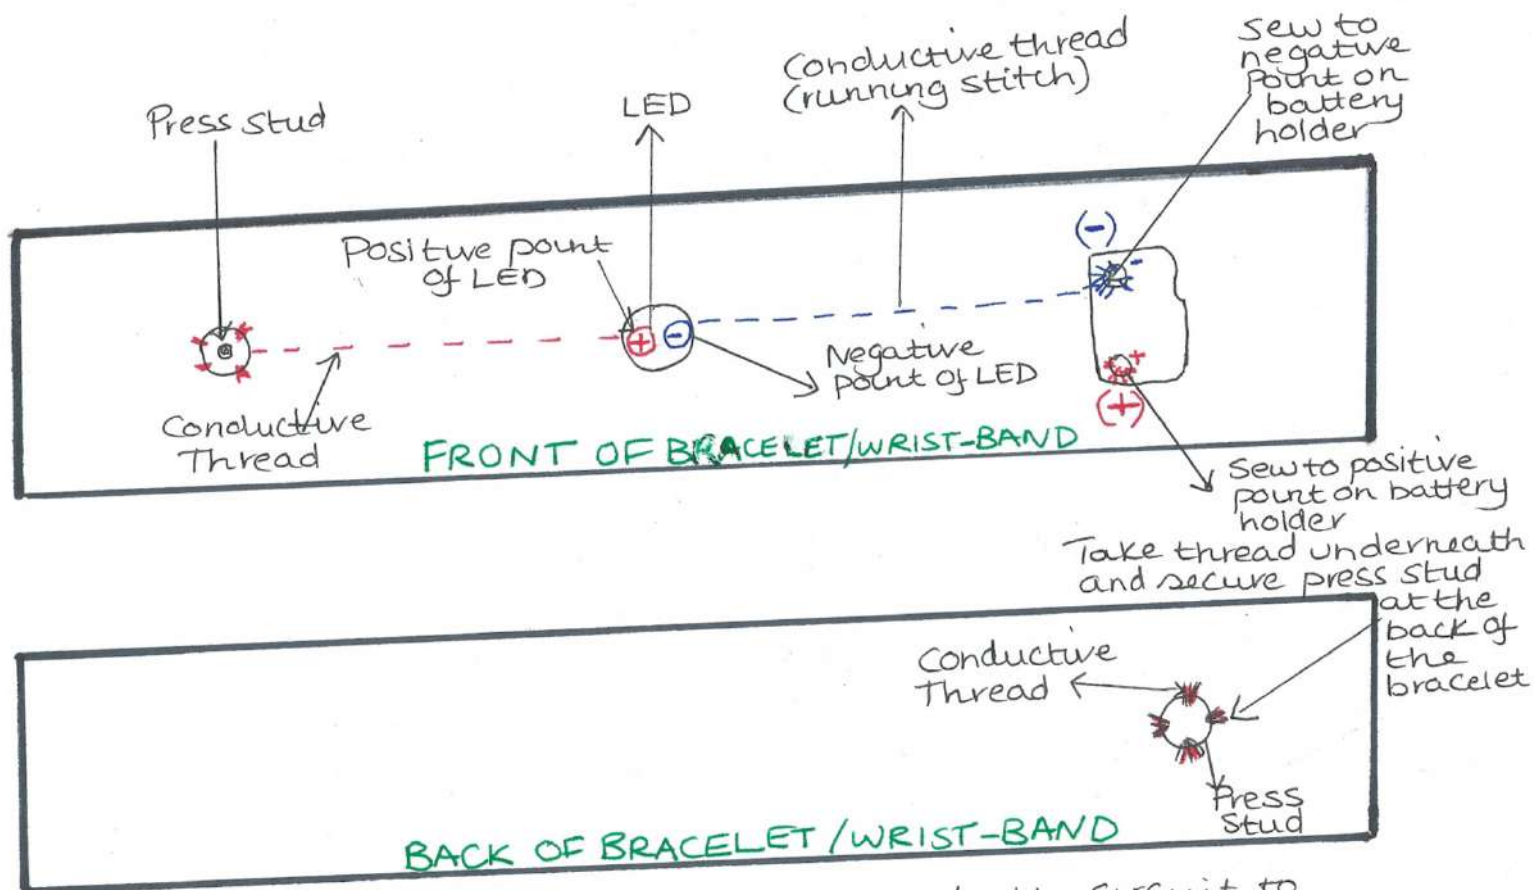 Press stud
LED
Conductive thread
(running stitch)
Sew to
negative
point on
battery
holder
Positive point
of LED
(-)
-
+
-
Negative
point of LED
+
(+)
Conductive
Thread
FRONT OF BRACELET/WRIST-BAND
Sew to positive
point on battery
holder
Take thread underneath
and secure press stud
at the
back of
the
bracelet
Conductive
Thread
Press
Stud
BACK OF BRACELET/WRIST-BAND
circuit to